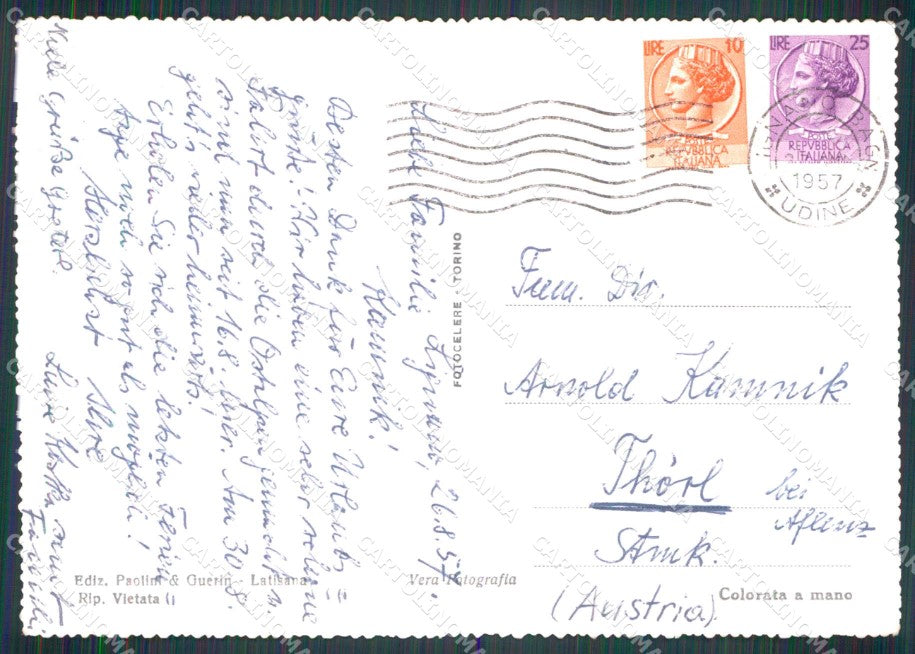 26.8.57.
Liebe Familie
Kamnik!
Besten Dank für Eure Urlaubs=
grüße! Wir haben eine sehr schöne
Fahrt durch die Ostalpen gemacht u.
sind nun seit 16.8. hier. Am 30.8.
geht's wieder heimwärts!
Erholen Sie sich die letzten Ferien
tage noch so gut als möglich!
Herzlichst Ihre
Viele Grüße Gretel.
LIRE 10
POSTE
REPVBBLICA
ITALIANA
LIRE 25
POSTE
REPVBBLICA
ITALIANA
1957
UDINE
Fam. Dir.
Arnold Kamnik
Thörl bei
Aflenz
Stmk.
(Austria)
FOTOCELERE - TORINO
Ediz. Paolini & Guerin - Latisana
Rip. Vietata
Vera Fotografia
Colorata a mano
CARTOLINOMANIA